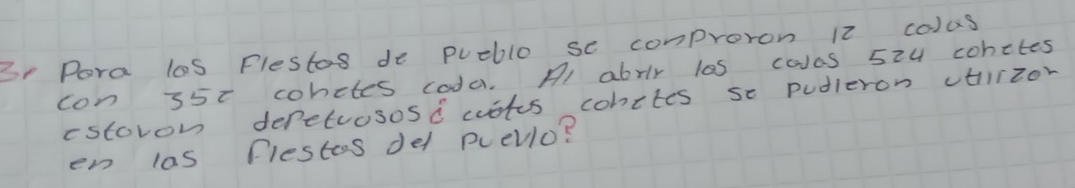 3r Para las Fiestas de Pueblo se compraron 12 cajas
con 352 cohetes cada. Al abrir las cajas 524 cohetes
estavon defetuosos ¿ cuótes cohetes se pudieron utilizar
en las fiestas del puevlo?